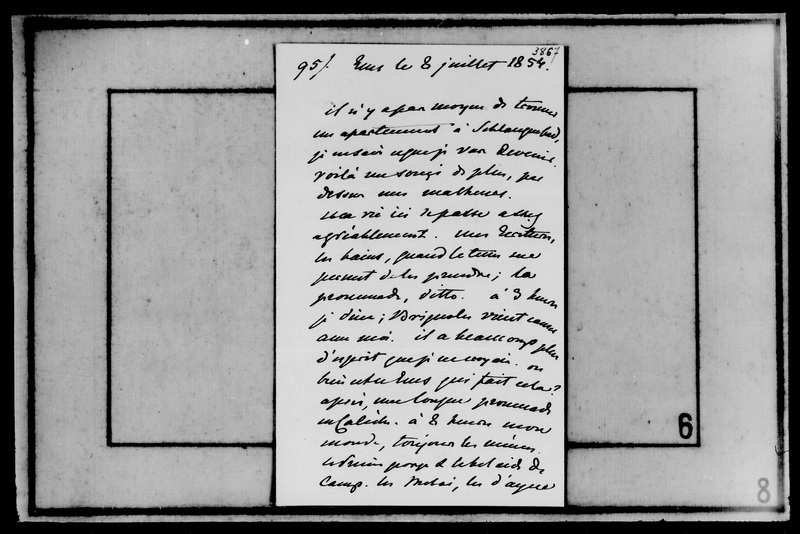 3867
95/. Ems le 8 juillet 1854.
il n'y a pas moyen de trouver
un apartement à Schlangenbad,
je ne sais ce que je vais devenir.
voilà un souci de plus, par
dessus mes malheurs.
ma vie ici se passe assez
agréablement. mes
les bains, quand le tems me
permet de les prendre; la
promenade, ditto. à 3 heures
je dine; Brignoles vient causer
avec moi. il a beaucoup plus
d'esprit que je ne croyais. ou
bien est-ce Ems qui fait cela?
après, une longue promenade
en Calèche. à 8 heures mon
monde, toujours les mêmes.
le Prince george & le bel aide de
Camp. les les d'
6
8